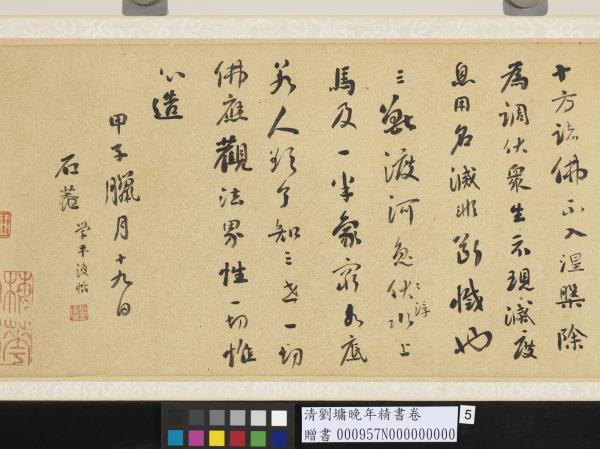 十方諸佛不入涅槃除
為調伏眾生示現滅度
息用名滅非斷也
三獸渡河兔伏水上
浮
馬及一半象窮水底
若人欲了知三世一切
佛應觀法界性一切惟
心造
甲子臘月十九日
石菴
学平復帖
清劉墉晚年精書卷
贈書 000957N000000000
5